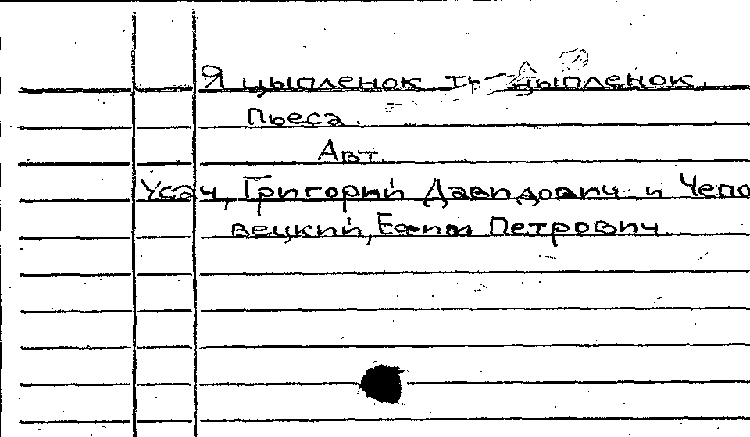 Я цыпленок ты цыпленок.
Пьеса.
Авт.
Усач, Григорий Давидович и Чепо
вецкий, Ефим Петрович